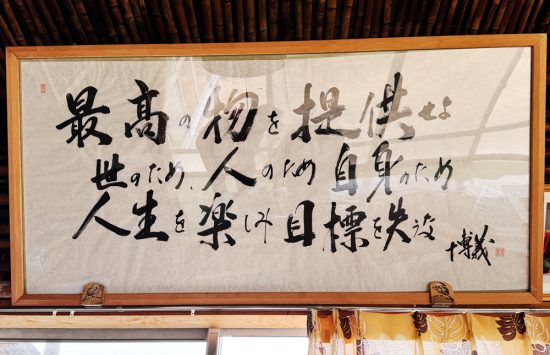 最高の物を提供せよ
世のため、人のため 自身のため
人生を楽しみ 目標を失
博義